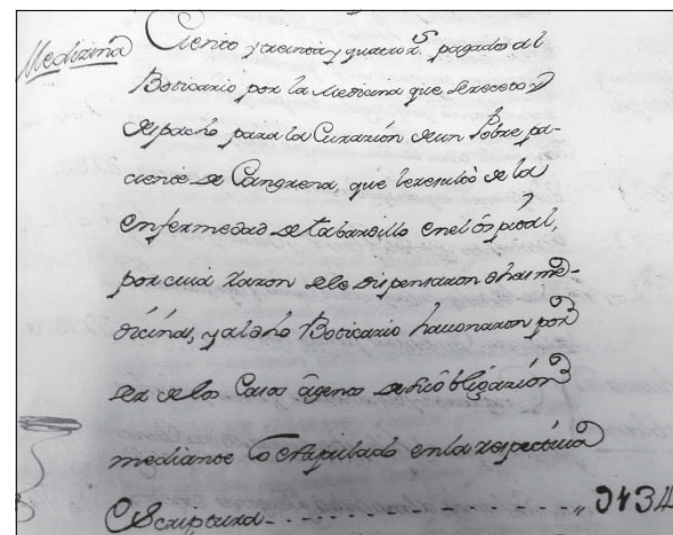 Medizina
Ciento y treinta y quatro rs. pagados al
Boticario por la Medicina que se receto y
despacho para la Curazión de un Pobre pa-
ciente de Cangrena, que le resultó de la
enfermedad de tabardillo en el ôspital,
por cuia razon se le dispensaron dhas me-
dicinas, y al dho Boticario havonaron por
ser de los Casos ágenos de su obligazión
mediante lo estipulado en la respectiva
Escriptura - - - - - - - - - - - - - - „ 0134